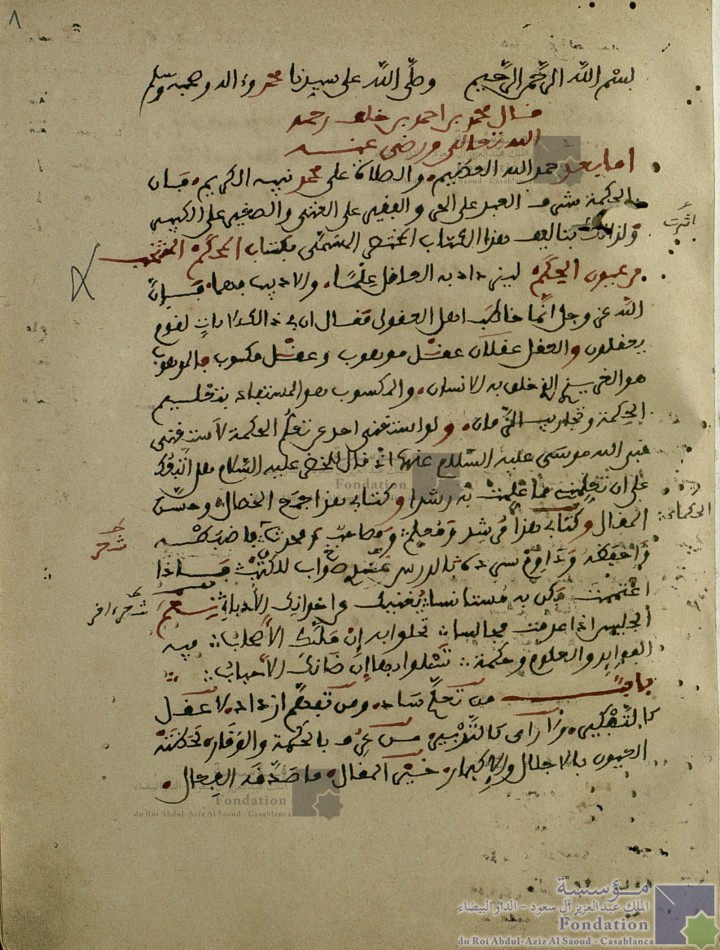 ٨
بسم الله الرحمن الرحيم وصلى الله على سيدنا محمد وءاله وصحبه وسلم
قال محمد بن احمد بن خلف رحمه
الله تعالى ورضي عنه
اما بعد حمد الله العظيم والصلاة على محمد نبيه الكريم فإن
الحكمة شرف العبد على الغني والصغير على الكبير
اثرت
ولذلك بتاليف هذا الكتاب المختصر المسمى بكتاب الحكم المنتخب
من عيون الحكم ليزداد به العاقل علما والاديب فهما فإن
الله عز وجل انما خاطب اهل العقول فقال ان في ذلك لآيات لقوم
يعقلون والعقل عقلان عقل موهوب وعقل مكسوب فالموهوب
هو الغريزي الذي خلق به الانسان والمكسوب هو المستفاد بتعليم
الحكمة وتجاريب الزمان ولو استغنى احد عن تعلم الحكمة لاستغنى
نبي الله موسى عليه السلام عنها اذ قال للخضر عليه السلام هل اتبعك
على ان تعلمن مما علمت رشدا وكتابي هذا جمع الخصال وحسن
الحكماء
المقال وكتابي هذا مرشد ومعلم وصاحب ومحدث فاضبطه
شعر
واحفظه بالدرس صواب للكتب فاذا
اغتممت فكن به مستانسا يغنيك عن اخوانك الأدباء
شعر ءاخر
نعم الجليس اذا اعرفت مجالسا تخلوا به إن ملك الأصحاب فيه
الفوائد والعلوم وحكمة تسلوا بها إن خانك الأحباب
باب من تحلم ساد ومن تفهم ازداد لا عقل
كالتفكير ولا رأي كالتدبير من عرف بالحكمة والوقار لحظته
العيون بالاجلال والإكبار خير المقال ما صدقه الفعال
مؤسسة
الملك عبد العزيز آل سعود - الدار البيضاء
Fondation
du Roi Abdul-Aziz Al Saoud - Casablanca